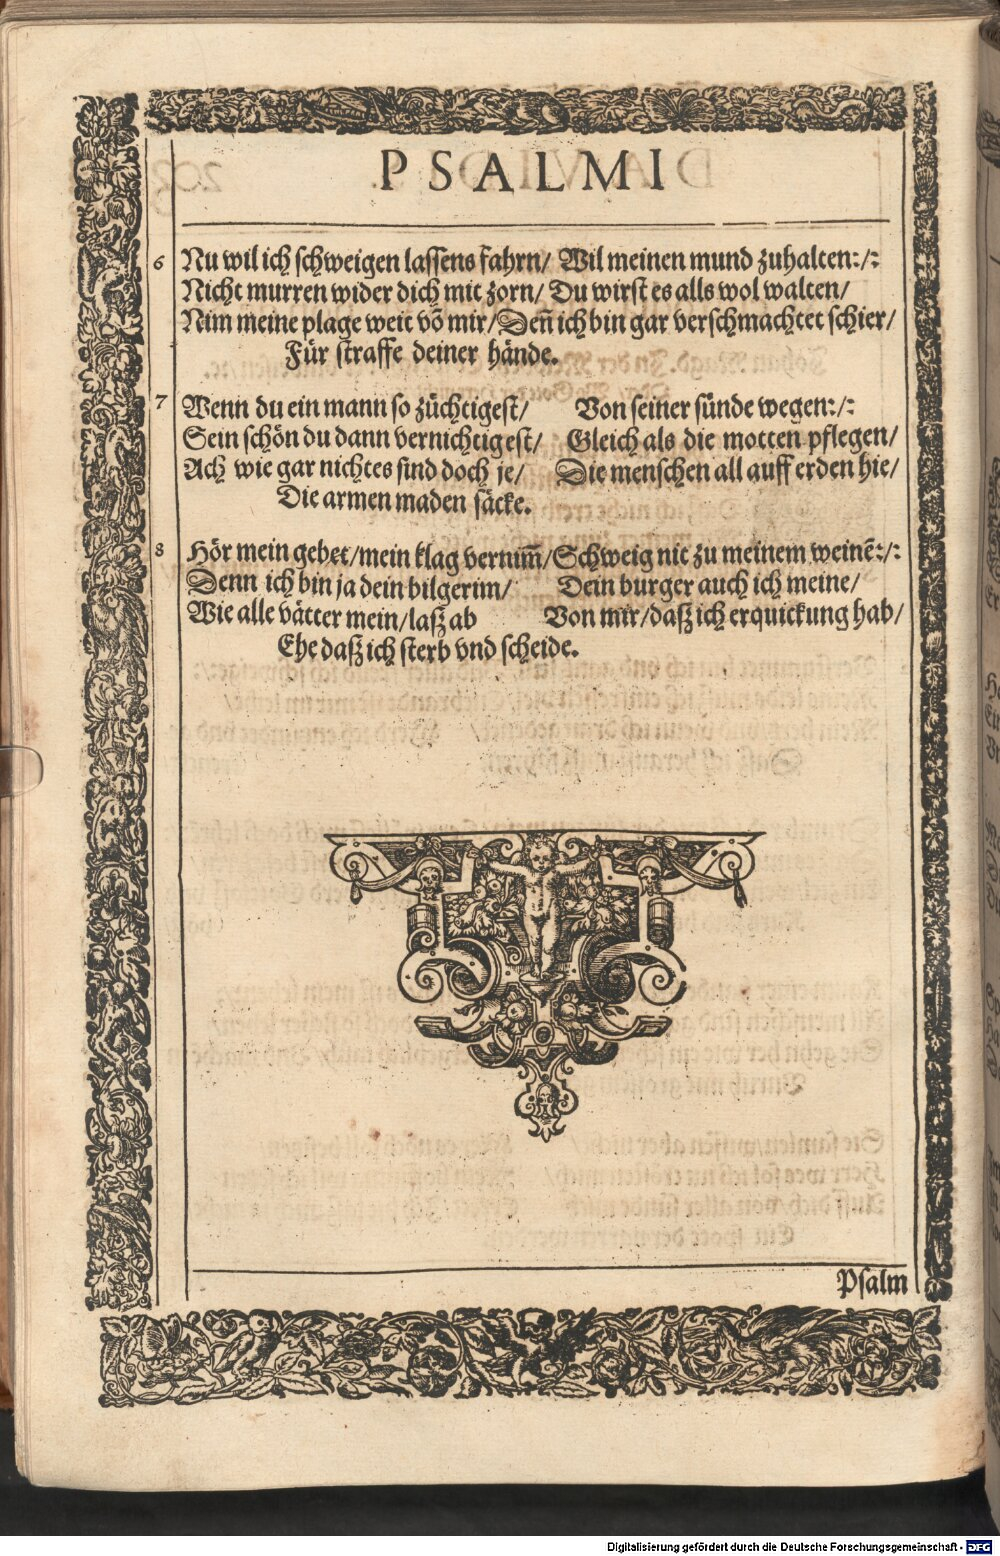 PSALMI
6 Nu wil ich schweigen lassens fahrn/ Wil meinen mund zuhalten:/:
Nicht murren wider dich mit zorn/ Du wirst es alls wol walten/
Nim meine plage weit võ mir/ Deñ ich bin gar verschmachtet schier/
Für straffe deiner hände.
7 Wenn du ein mann so züchtigest/ Von seiner sünde wegen:/:
Sein schön du dann vernichtigest/ Gleich als die motten pflegen/
Ach wie gar nichtes sind doch je/ Die menschen all auff erden hie/
Die armen maden säcke.
8 Hör mein gebet/ mein klag vernim̃/ Schweig nit zu meinem weinẽ:/:
Denn ich bin ja dein bilgerim/ Dein burger auch ich meine/
Wie alle vätter mein/ laß ab Von mir/ daß ich erquickung hab/
Ehe daß ich sterb vnd scheide.
Psalm
Digitalisierung gefördert durch die Deutsche Forschungsgemeinschaft - DFG